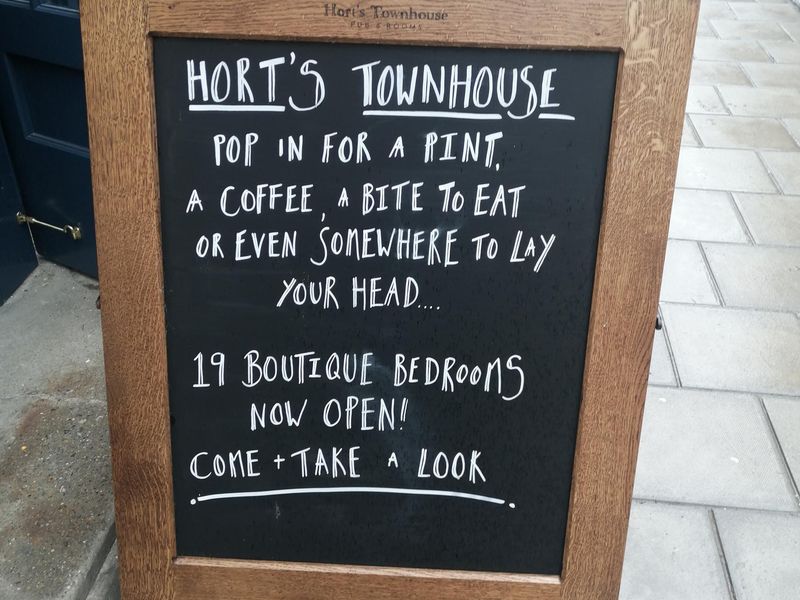 Hort's Townhouse
PUB & ROOMS
HORT'S TOWNHOUSE
POP IN FOR A PINT,
A COFFEE, A BITE TO EAT
OR EVEN SOMEWHERE TO LAY
YOUR HEAD....
19 BOUTIQUE BEDROOMS
NOW OPEN!
COME + TAKE A LOOK